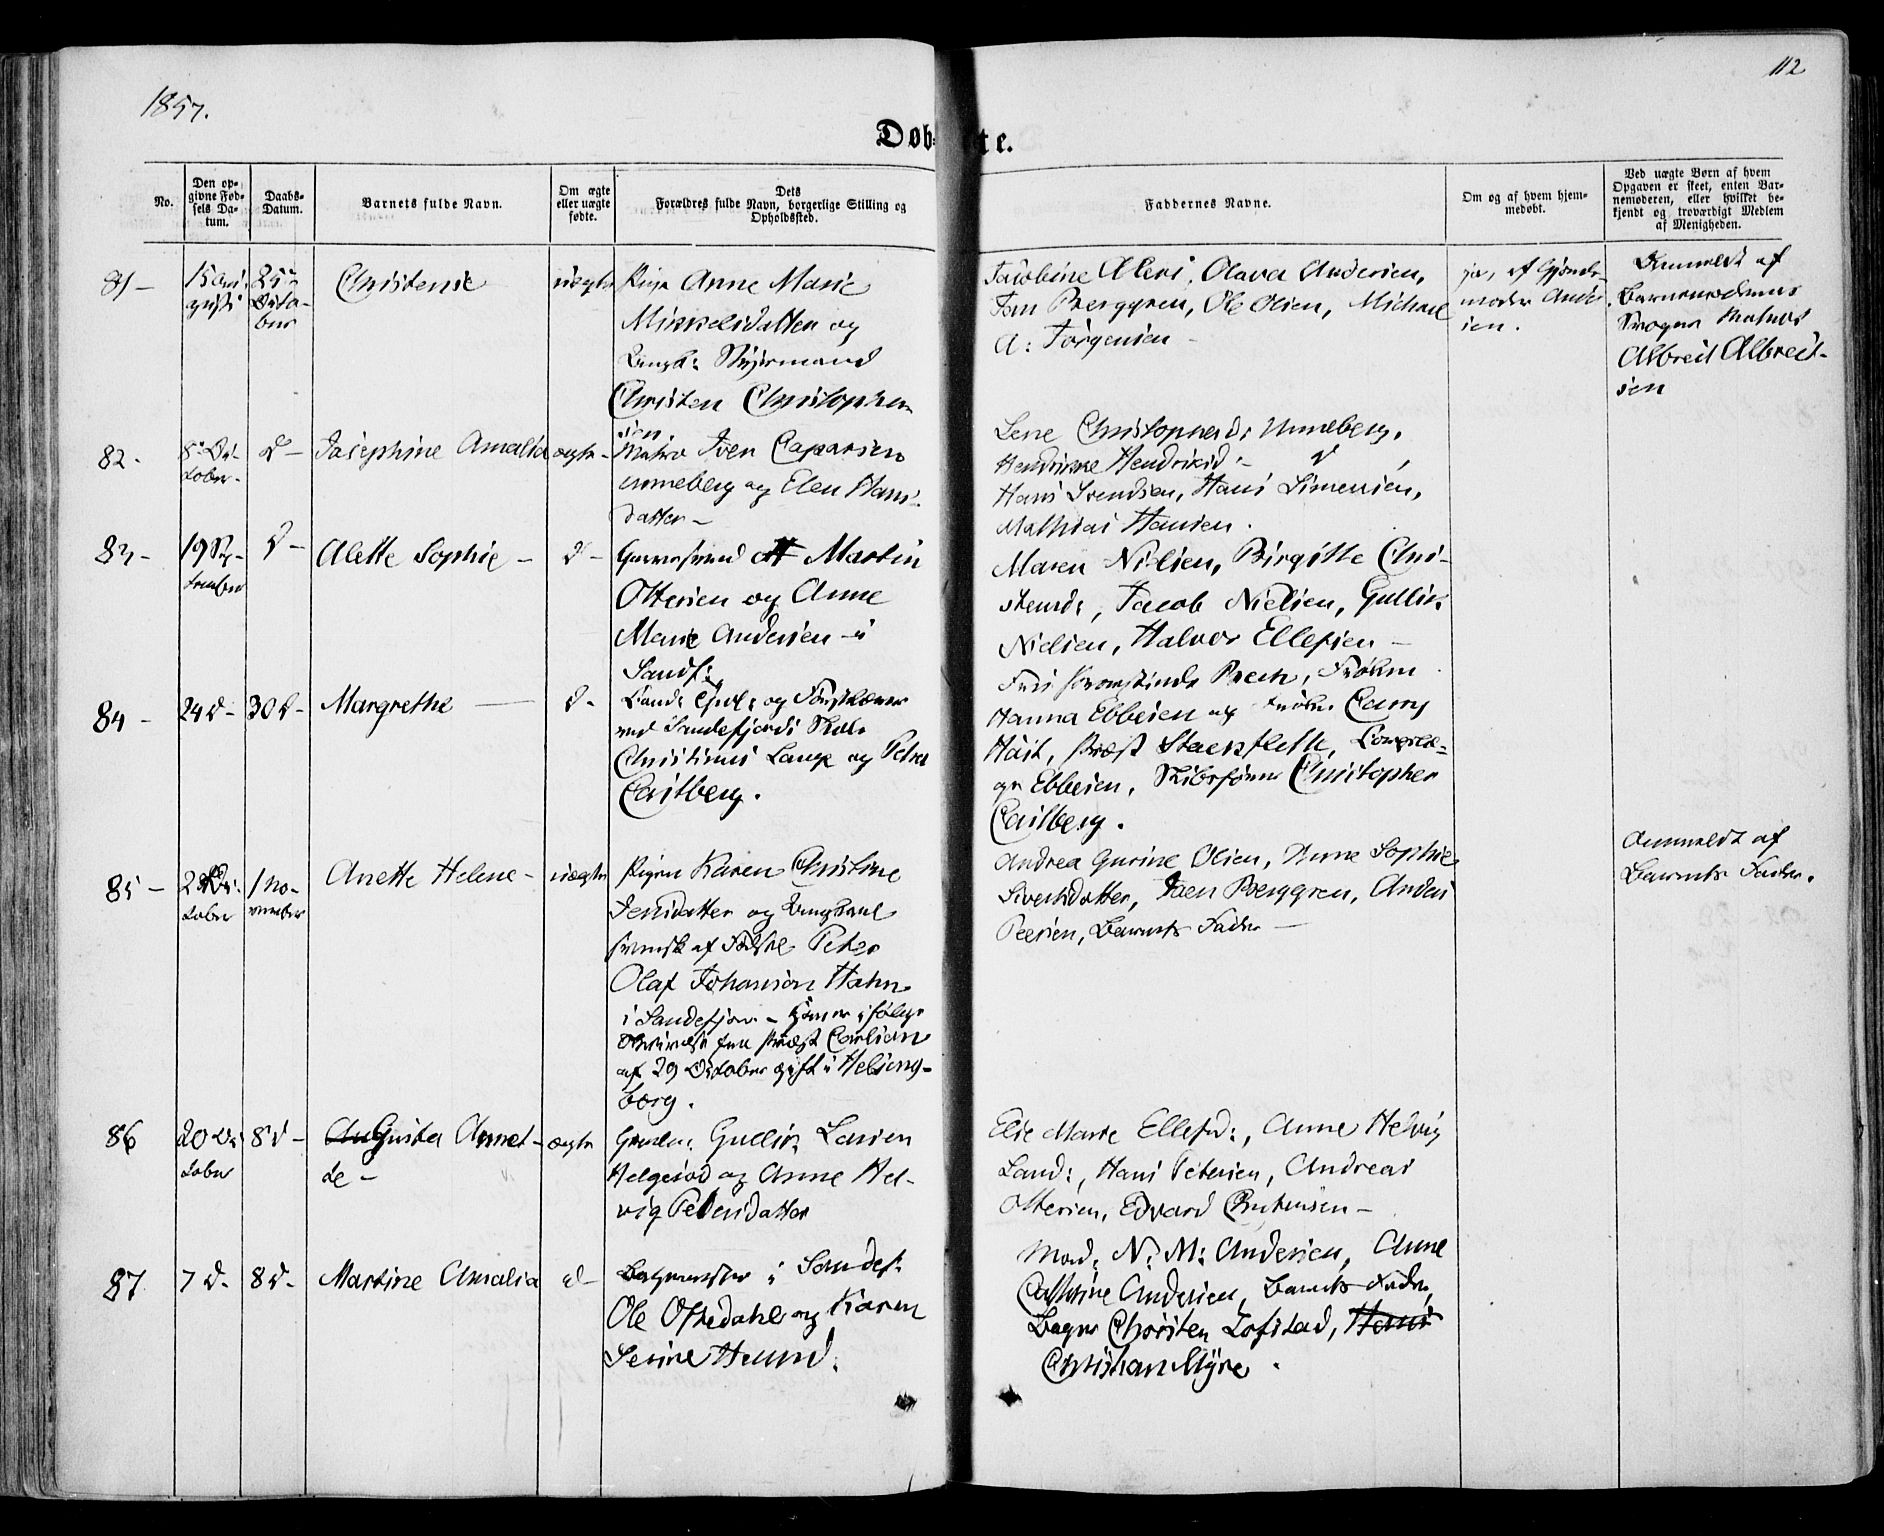 1857.
112
Døb-te.
No.
Den op-
givne Fød-
sels Da-
tum.
Daabs-
Datum.
Barnets fulde Navn.
Om ægte
eller uægte
fødte.
Dets
Forældres fulde Navn, borgerlige Stilling og
Opholdssted.
Faddernes Navne.
Om og af hvem hjem-
medøbt.
Ved uægte Børn af hvem
Opgaven er skeet, enten Bar-
nemoderen, eller hvilket be-
kjendt og troværdigt Medlem
af Menigheden.
81 -
15 Au-
gust
25
Octo-
ber
Christense
uægte
Pige Anne Marie
Mikkelsdatter og
Ungk: Styrmand
Christen Christopher-
sen.
Jacobine Olava Andersen,
Berggren, Ole Olsen, Michael
A: Jørgensen -
ja, af Gjorde-
moder Ander-
sen.
Anmeldt af
Barnemoderens
Svoger Matros
Albreit Albreit-
sen
82 -
8 Oc-
tober -
d -
Josephine Amalia
ægte -
Matros Iver Caspersen
Unneberg og Elen Hans-
datter -
Lene Christophersd: Unneberg,
Hendrikke Hendriksd: - d,
Hans Svendsen, Hans Simensen,
Mathias Hansen.
83 -
19 Sep-
tember
d -
Alette Sophie -
d -
Martin
Ottersen og Anne
Marie Andersen - i
Sandf:
Maren Nilsen, Birgitte Chri-
stensd:, Jacob Nielsen, Gullik
Nielsen, Halvor Ellefsen -
84 -
24 d -
30 d -
Margrethe
d -
Cand: og
ved Sandefjords Skole
Christinus Lange og Petra
Castberg.
Frøken
Hanna Ebbesen og Frøken
Præst Stockfleth,
Ebbesen, Skibsfører Christopher
Castberg.
85 -
Oc-
tober
1 No-
vember
Anette Helene -
uægte
Pigen Karen Christine
Jensdatter og Ungkarl
svensk af Fødsel Peter
Olaf Johanson Hahn
i Sandefjord -
fra Præst Carlson
af 29 October gift i Helsing-
borg.
Andrea Gurine Olsen, Anne Sophie
Sivertsdatter, Berggren, Anders
Peersen, Barnets Fader -
Anmeldt af
Barnets Fader.
86
20 Oc-
tober
8 d -
Augusta Annet-
te -
ægte
Gaardm: Gullik Larsen
Helgerød og Anne Hel-
vig Petersdatter
Else Marie Ellefsd:, Anne Helvig
Land:, Hans Petersen, Andreas
Ottersen, Edvard Christensen -
87
7 d -
8 d -
Martine Amalia
d -
Bagermester i Sandef.
Ole Oftedahl og Karen
Serine
Mad: N: M: Andersen, Anne
Cathrine Andersen, Barnets Fader,
Bager Chorsten Lofstad, Hans
Christian Myre.